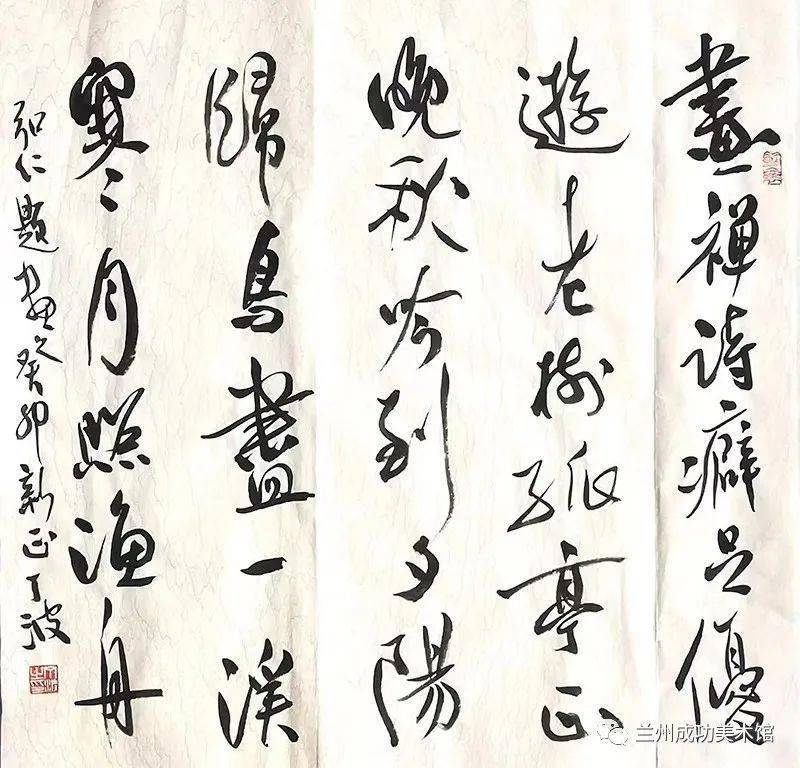 畫禪詩癖足優
遊老樹孤亭正
晚秋吟到夕陽
歸鳥盡一溪
寒月照漁舟
弘仁題畫癸卯新正丁波
兰州成功美术馆